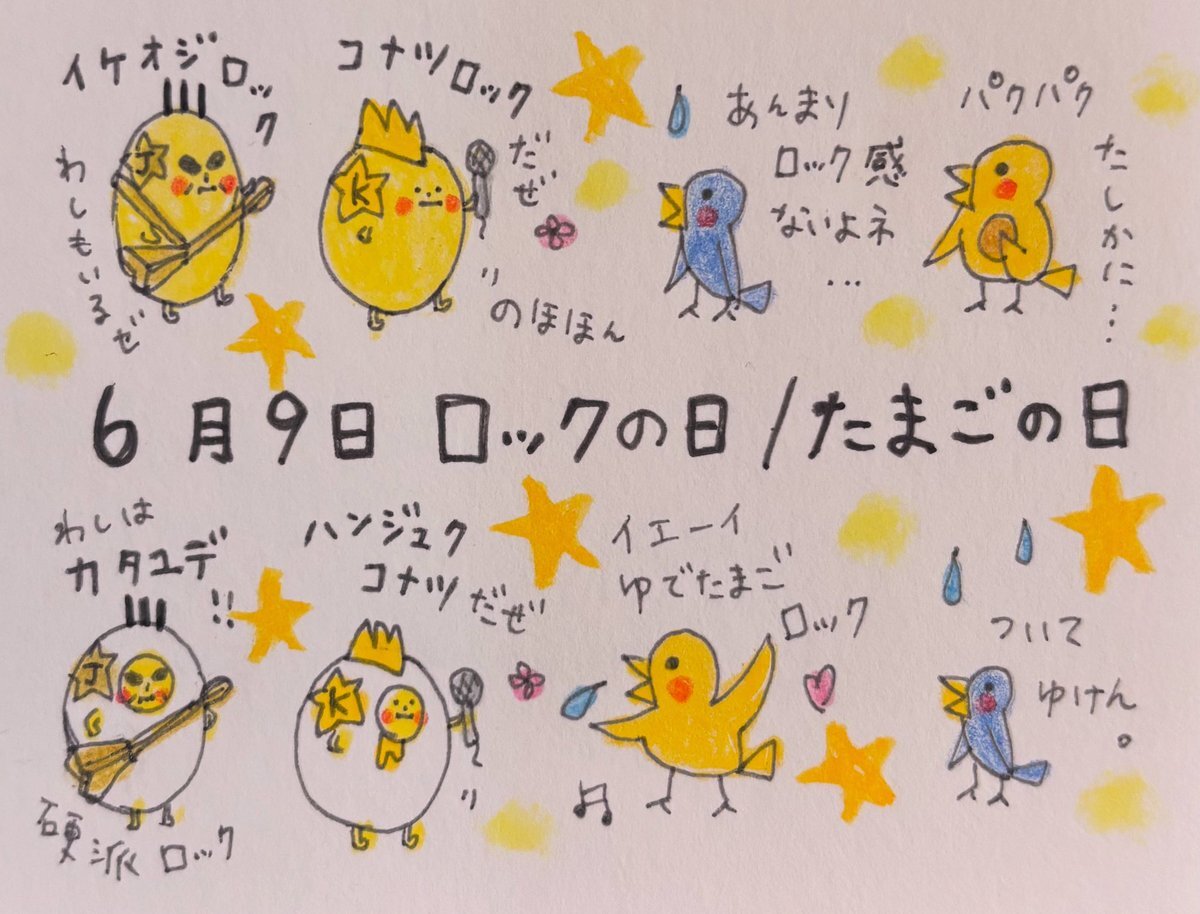 イケオジロック
J
わしもいるぜ
コナツロック
だぜ
K
のほほん
あんまり
ロック感
ないよネ
…
パクパク
たしかに…
6月9日 ロックの日/たまごの日
わしは
カタユデ!!
J
硬派ロック
ハンジュク
コナツだぜ
K
イエーイ
ゆでたまご
ロック
ついて
ゆけん。